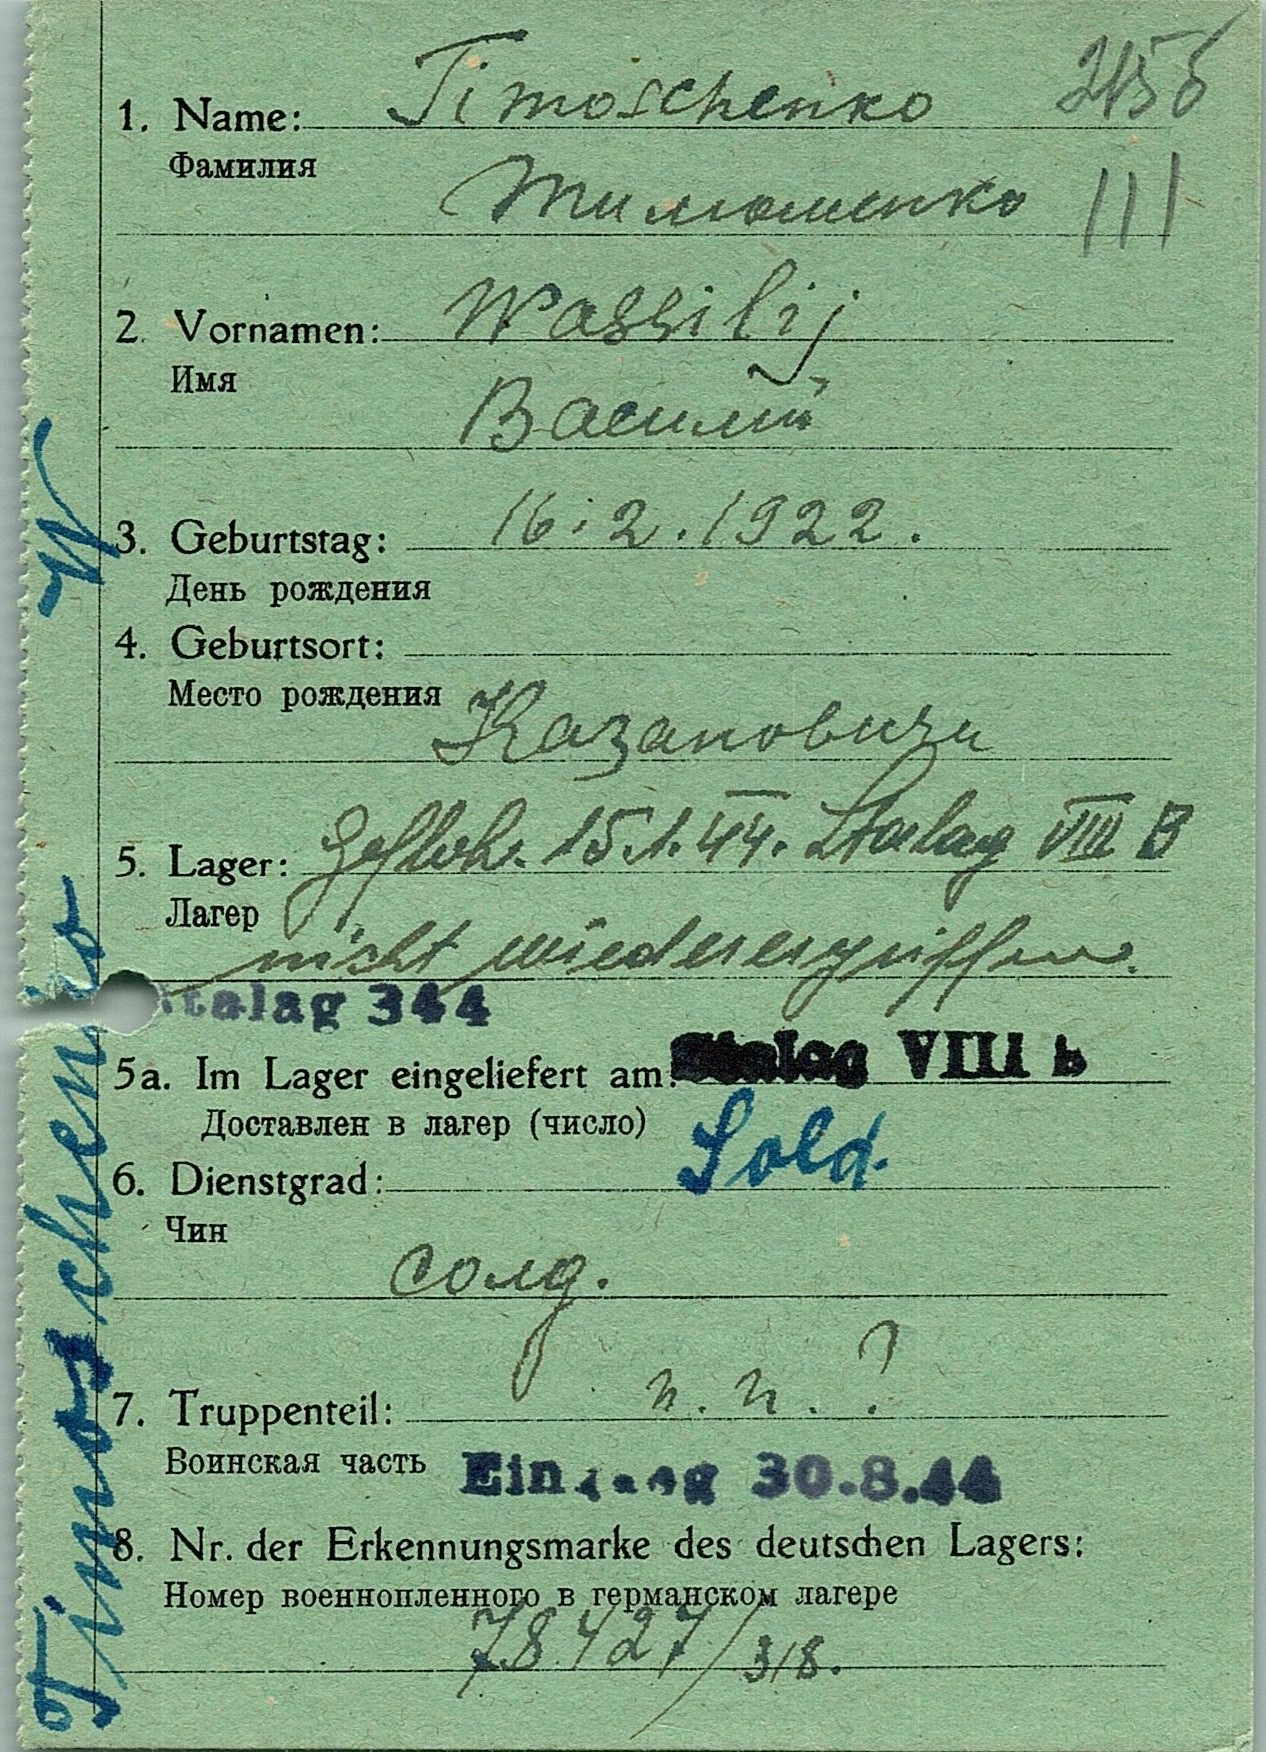 1. Name: Timoschenko
Фамилия
Тимошенко
III
2. Vornamen: Wassilij
Имя
Василий
3. Geburtstag: 16.2.1922.
День рождения
4. Geburtsort:
Место рождения
Казановичи
5. Lager: Gefloh. 15.1.44. Stalag VIII B
Лагер
nicht wiederergriffen.
Stalag 344
5a. Im Lager eingeliefert am: Stalag VIII b
Доставлен в лагер (число)
6. Dienstgrad: Sold.
Чин
солд.
7. Truppenteil: n. n. ?
Воинская часть
Eingang 30.8.44
8. Nr. der Erkennungsmarke des deutschen Lagers:
Номер военнопленного в германском лагере
78427/318.
Timoschenko W